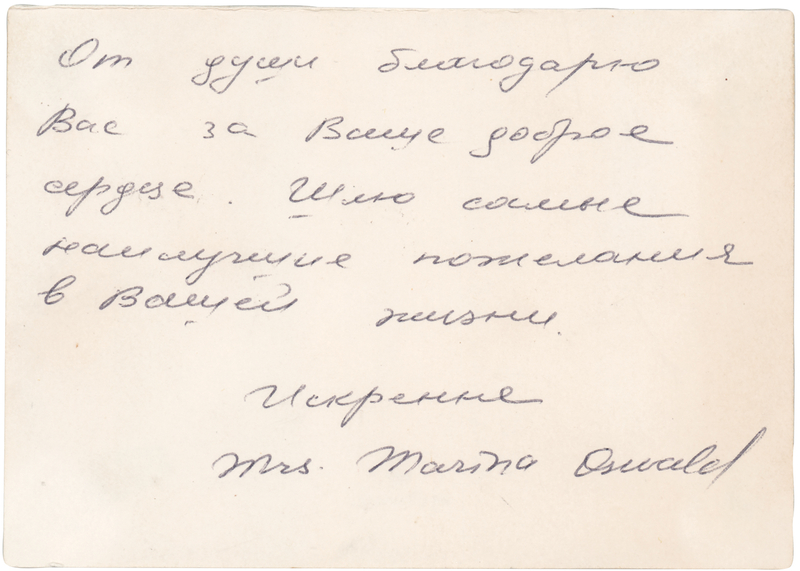 От души благодарю
Вас за Ваше доброе
сердце. Шлю самые
наилучшие пожелания
в Вашей жизни.
Искренне
Mrs. Marina Oswald